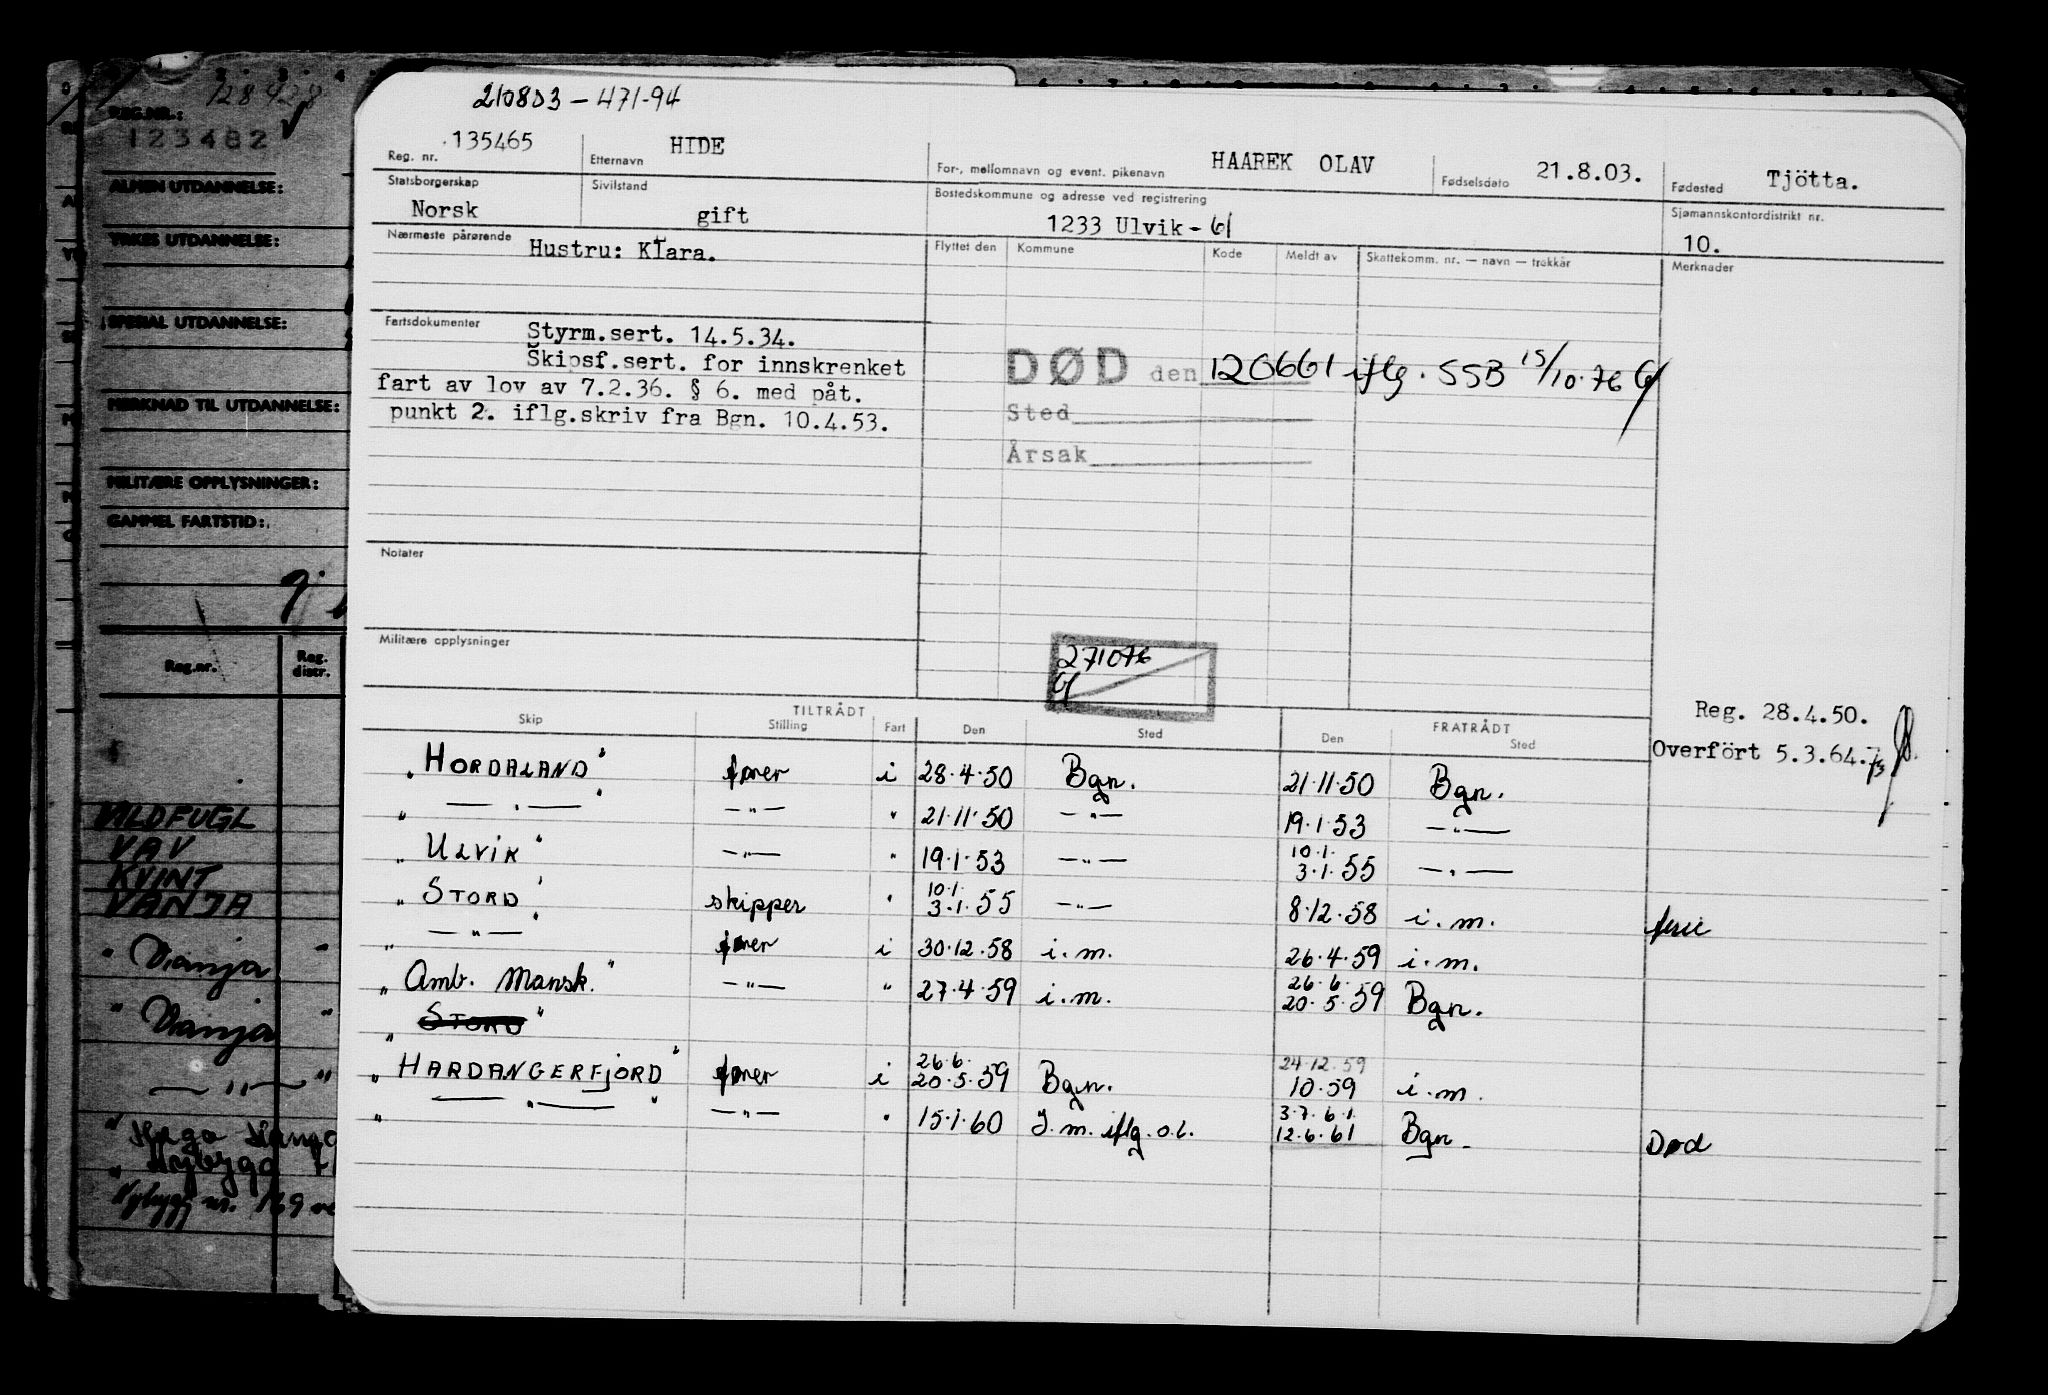 210803 - 471-94
128428
REG.NR.:
123482
ALMEN UTDANNELSE:
YRKES UTDANNELSE:
SPESIAL UTDANNELSE:
MERKNAD TIL UTDANNELSE:
MILITÆRE OPPLYSNINGER:
GAMMEL FARTSTID:
Reg.nr. Reg. distr.
VILDFUGL
VAV
KVINT
VANJA
" Vanja "
" Vanja "
— " — "
Nybygg nr. 169
Reg. nr. 135465 Etternavn HIDE For-, mellomnavn og event. pikenavn HAAREK OLAV Fødselsdato 21.8.03. Fødested Tjötta.
Statsborgerskap Norsk Sivilstand gift Bostedskommune og adresse ved registrering 1233 Ulvik - 61 Sjømannskontordistrikt nr. 10.
Nærmeste pårørende Hustru: Klara. Flyttet den Kommune Kode Meldt av Skattekomm. nr. — navn — trekkår Merknader
Fartsdokumenter Styrm.sert. 14.5.34.
Skipsf.sert. for innskrenket
fart av lov av 7.2.36. § 6. med påt.
punkt 2. iflg.skriv fra Bgn. 10.4.53.
DØD den 120661 iflg. SSB 15/10-76
Sted
Årsak
Notater
Militære opplysninger
271076
Reg. 28.4.50.
Overfört 5.3.64.
TILTRÅDT FRATRÅDT
Skip Stilling Fart Den Sted Den Sted
"HORDALAND" fører i 28.4.50 Bgn. 21.11.50 Bgn.
" — " — " — " — " 21.11.50 — " — 19.1.53 — " —
"ULVIK" — " — " 19.1.53 — " — 10.1. 3.1.55 — " —
"STORD" skipper " 10.1. 3.1.55 — " — 8.12.58 i.m. ferie
" — " — " fører i 30.12.58 i.m. 26.4.59 i.m.
"Amb. Mansk." — " — " 27.4.59 i.m. 26.6. 20.5.59 Bgn.
"STORD"
"HARDANGERFJORD" fører i 26.6. 20.5.59 Bgn. 24.12.59 10.59 i.m.
" — " — " — " — " 15.1.60 I.m. iflg. o.l. 3.7.61. 12.6.61 Bgn. Død